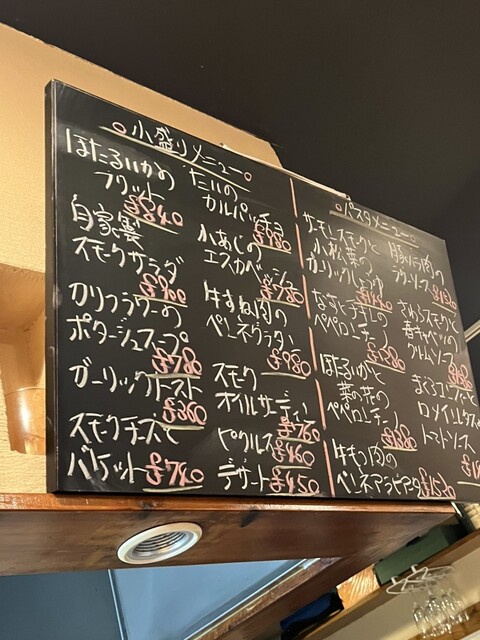 小盛りメニュー
ほたるいかの
フリット
¥840
自家製
スモークサラダ
¥900
カリフラワーの
ポタージュスープ
¥780
ガーリックトースト
¥360
スモークチーズと
バケット ¥740
たいの
カルパッチョ
¥980
小あじの
エスカベッシュ
¥780
牛すね肉の
ペンネグラタン
¥980
スモーク
オイルサーディン
¥760
ピクルス ¥460
デザート ¥450
パスタメニュー
サーモンスモークと
小松菜の
ガーリック
ななくさ
ペペロンチーノ
¥1380
ほたるいかと
菜の花の
ペペロンチーノ
¥1380
牛すね肉の
ペンネアラビアータ ¥1520
豚バラ肉の
ラグーソース
さわらスモークと
春キャベツの
クリームソース
まぐろコンフィと
ロメインレタスの
トマトソース